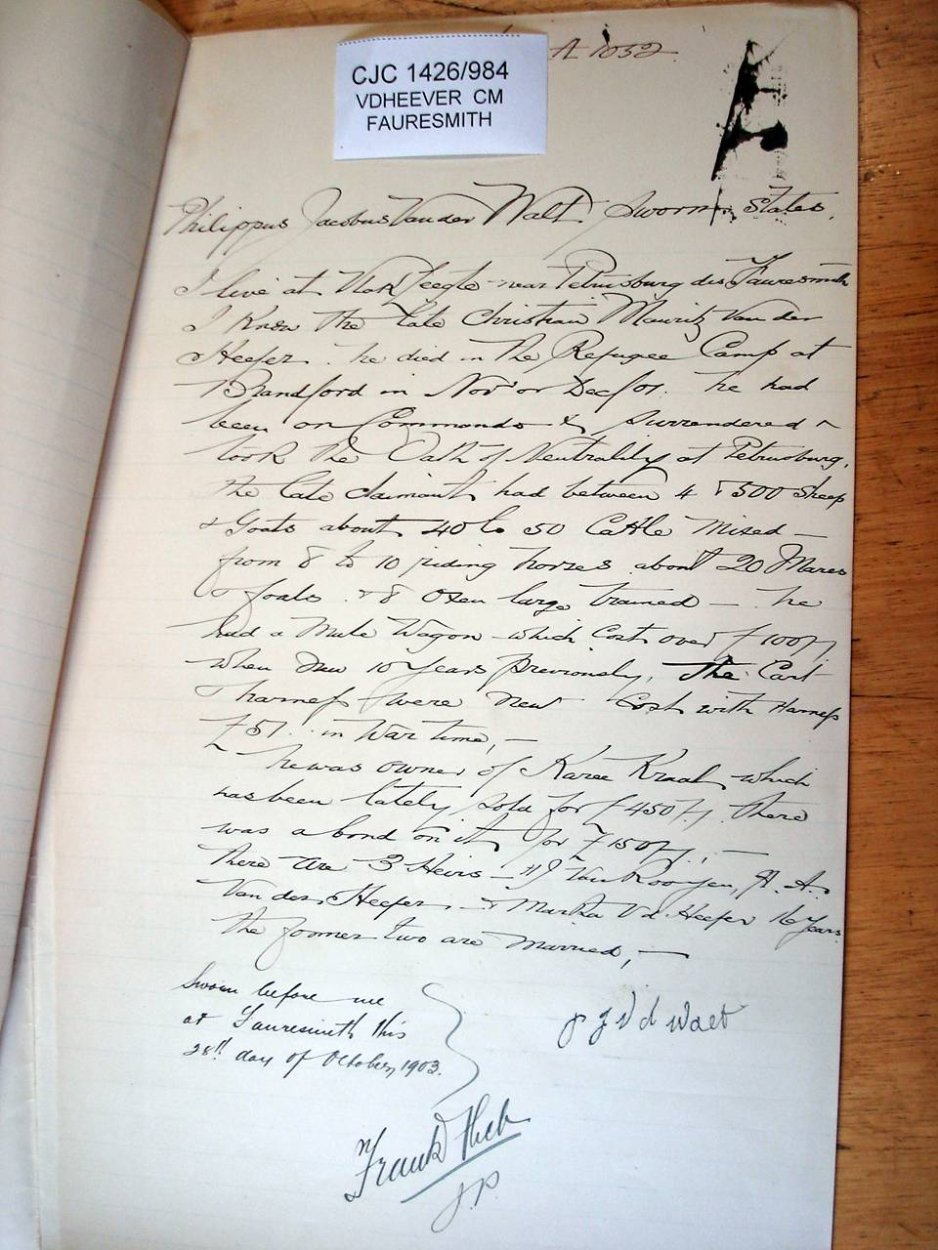 A 1052
CJC 1426/984
VDHEEVER CM
FAURESMITH
Philippus Jacobus Van der Walt Sworn States.
I live at near Petrusburg dis Fauresmith
I know the late Christian Mauritz Van der
Heefer. he died in the Refugee Camp at
Brandford in Novr or Dec/01. he had
been on Commando & surrendered &
took the Oath of Neutrality at Petrusburg.
the late claimant had between 4 & 500 Sheep
& Goats about 40 to 50 Cattle Mixed —
from 8 to 10 riding horses about 20 Mares
& foals. & 8 Oxen large trained — he
had a Mule Wagon which Cost over £100/,
when New 10 Years previously, The Cart
& harness were New Cost with Harness
£51. in War time, —
he was owner of Karee Kraal which
has been lately sold for £450/, there
was a bond on it for £150/, —
there are 3 Heirs — J Van Rooyen, H. A.
Van der Heefer — & Martha V d Heefer 16 Years
the former two are Married, —
Sworn before me
at Fauresmith this
28th day of October, 1903.
P J V d Walt
Frank
J.P.